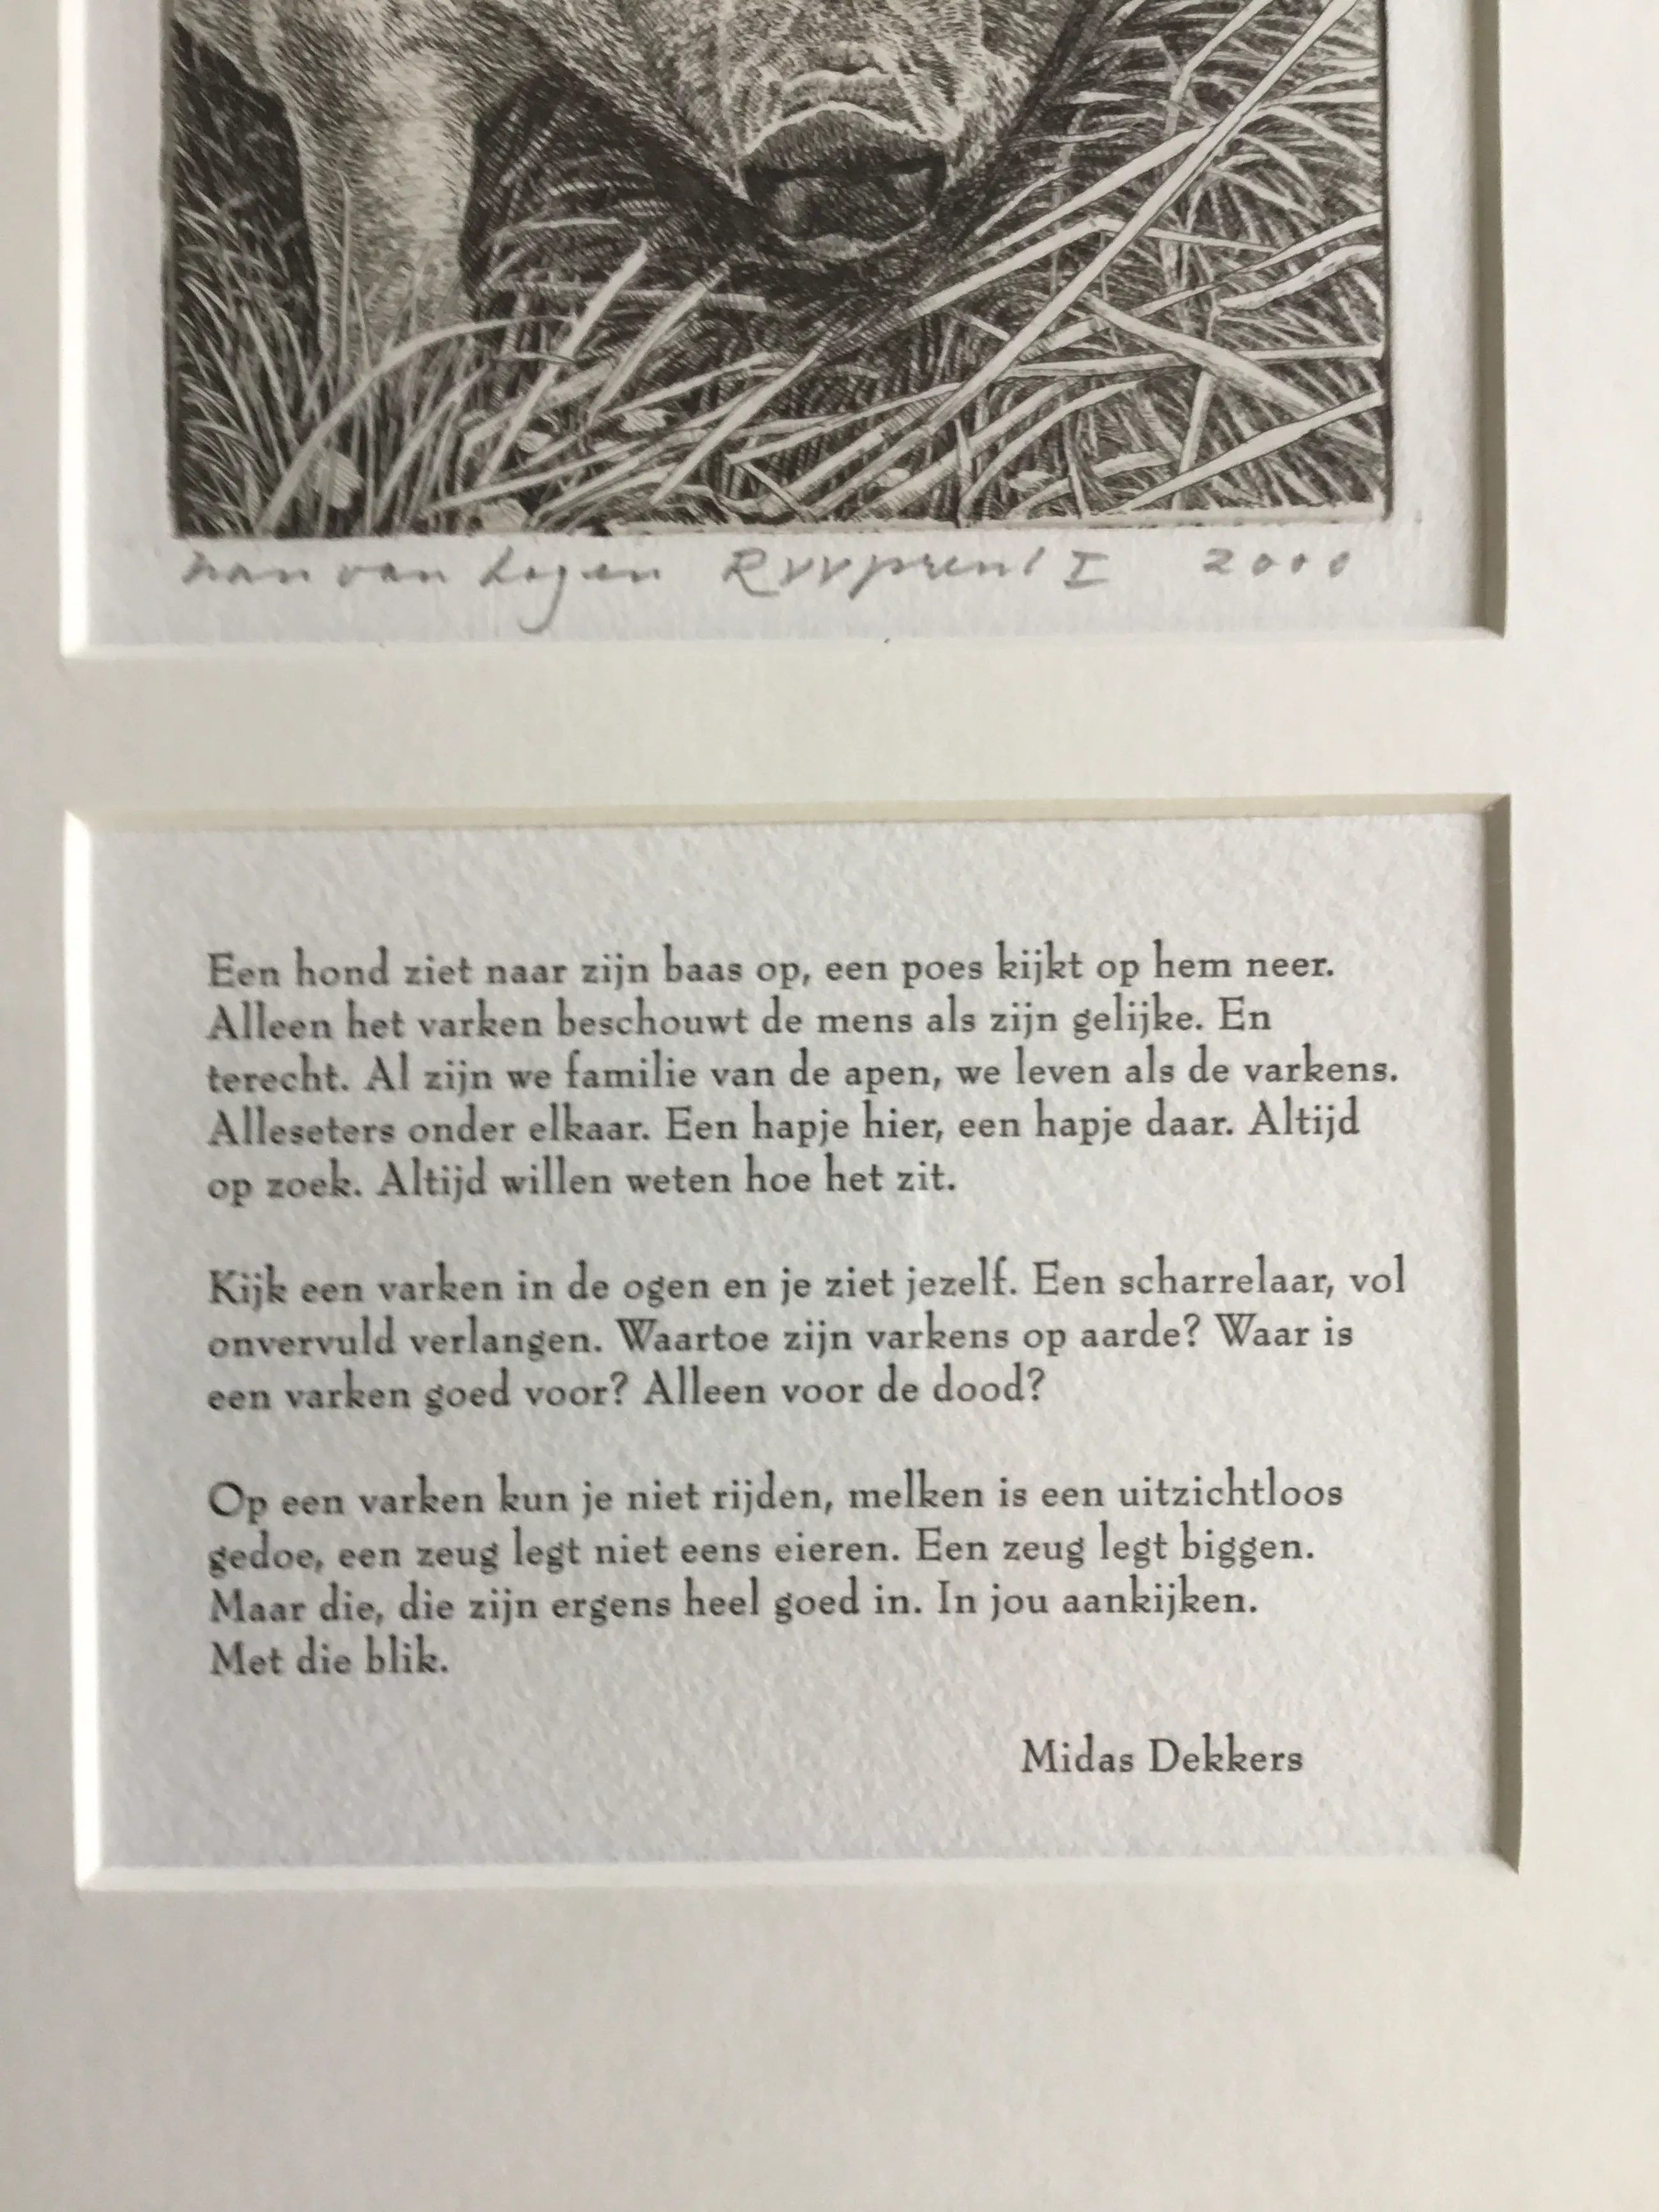 van Logen RVVprent I 2000
Een hond ziet naar zijn baas op, een poes kijkt op hem neer.
Alleen het varken beschouwt de mens als zijn gelijke. En
terecht. Al zijn we familie van de apen, we leven als de varkens.
Alleseters onder elkaar. Een hapje hier, een hapje daar. Altijd
op zoek. Altijd willen weten hoe het zit.
Kijk een varken in de ogen en je ziet jezelf. Een scharrelaar, vol
onvervuld verlangen. Waartoe zijn varkens op aarde? Waar is
een varken goed voor? Alleen voor de dood?
Op een varken kun je niet rijden, melken is een uitzichtloos
gedoe, een zeug legt niet eens eieren. Een zeug legt biggen.
Maar die, die zijn ergens heel goed in. In jou aankijken.
Met die blik.
Midas Dekkers